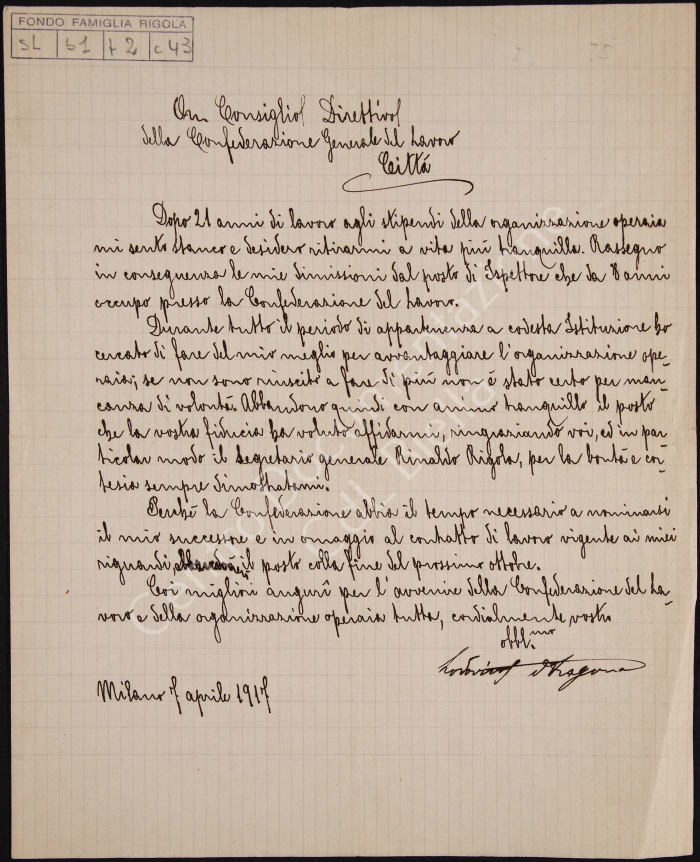 FONDO FAMIGLIA RIGOLA
SL b1 f2 c43
On. Consiglio Direttivo
della Confederazione Generale del Lavoro
Città
Dopo 21 anni di lavoro agli stipendi della organizzazione operaia
mi sento stanco e desidero ritirarmi a vita più tranquilla. Rassegno
in conseguenza le mie dimissioni dal posto di Ispettore che da 8 anni
occupo presso la Confederazione del Lavoro.
Durante tutto il periodo di appartenenza a codesta Istituzione ho
cercato di fare del mio meglio per avvantaggiare l'organizzazione ope-
raia; se non sono riuscito a fare di più non è stato certo per man-
canza di volontà. Abbandono quindi con animo tranquillo il posto
che la vostra fiducia ha voluto affidarmi, ringraziando voi, ed in par-
ticolar modo il segretario generale Rinaldo Rigola, per la bontà e cor-
tesia sempre dimostratami.
Perché la Confederazione abbia il tempo necessario a nominarsi
il mio successore e in omaggio al contratto di lavoro vigente ai miei
riguardi, il posto colla fine del prossimo ottobre.
Coi migliori augurî per l'avvenire della Confederazione del La-
voro e della organizzazione operaia tutta, cordialmente vostro
obbl.mo
Lodovico d'Aragona
Milano 7 aprile 1917